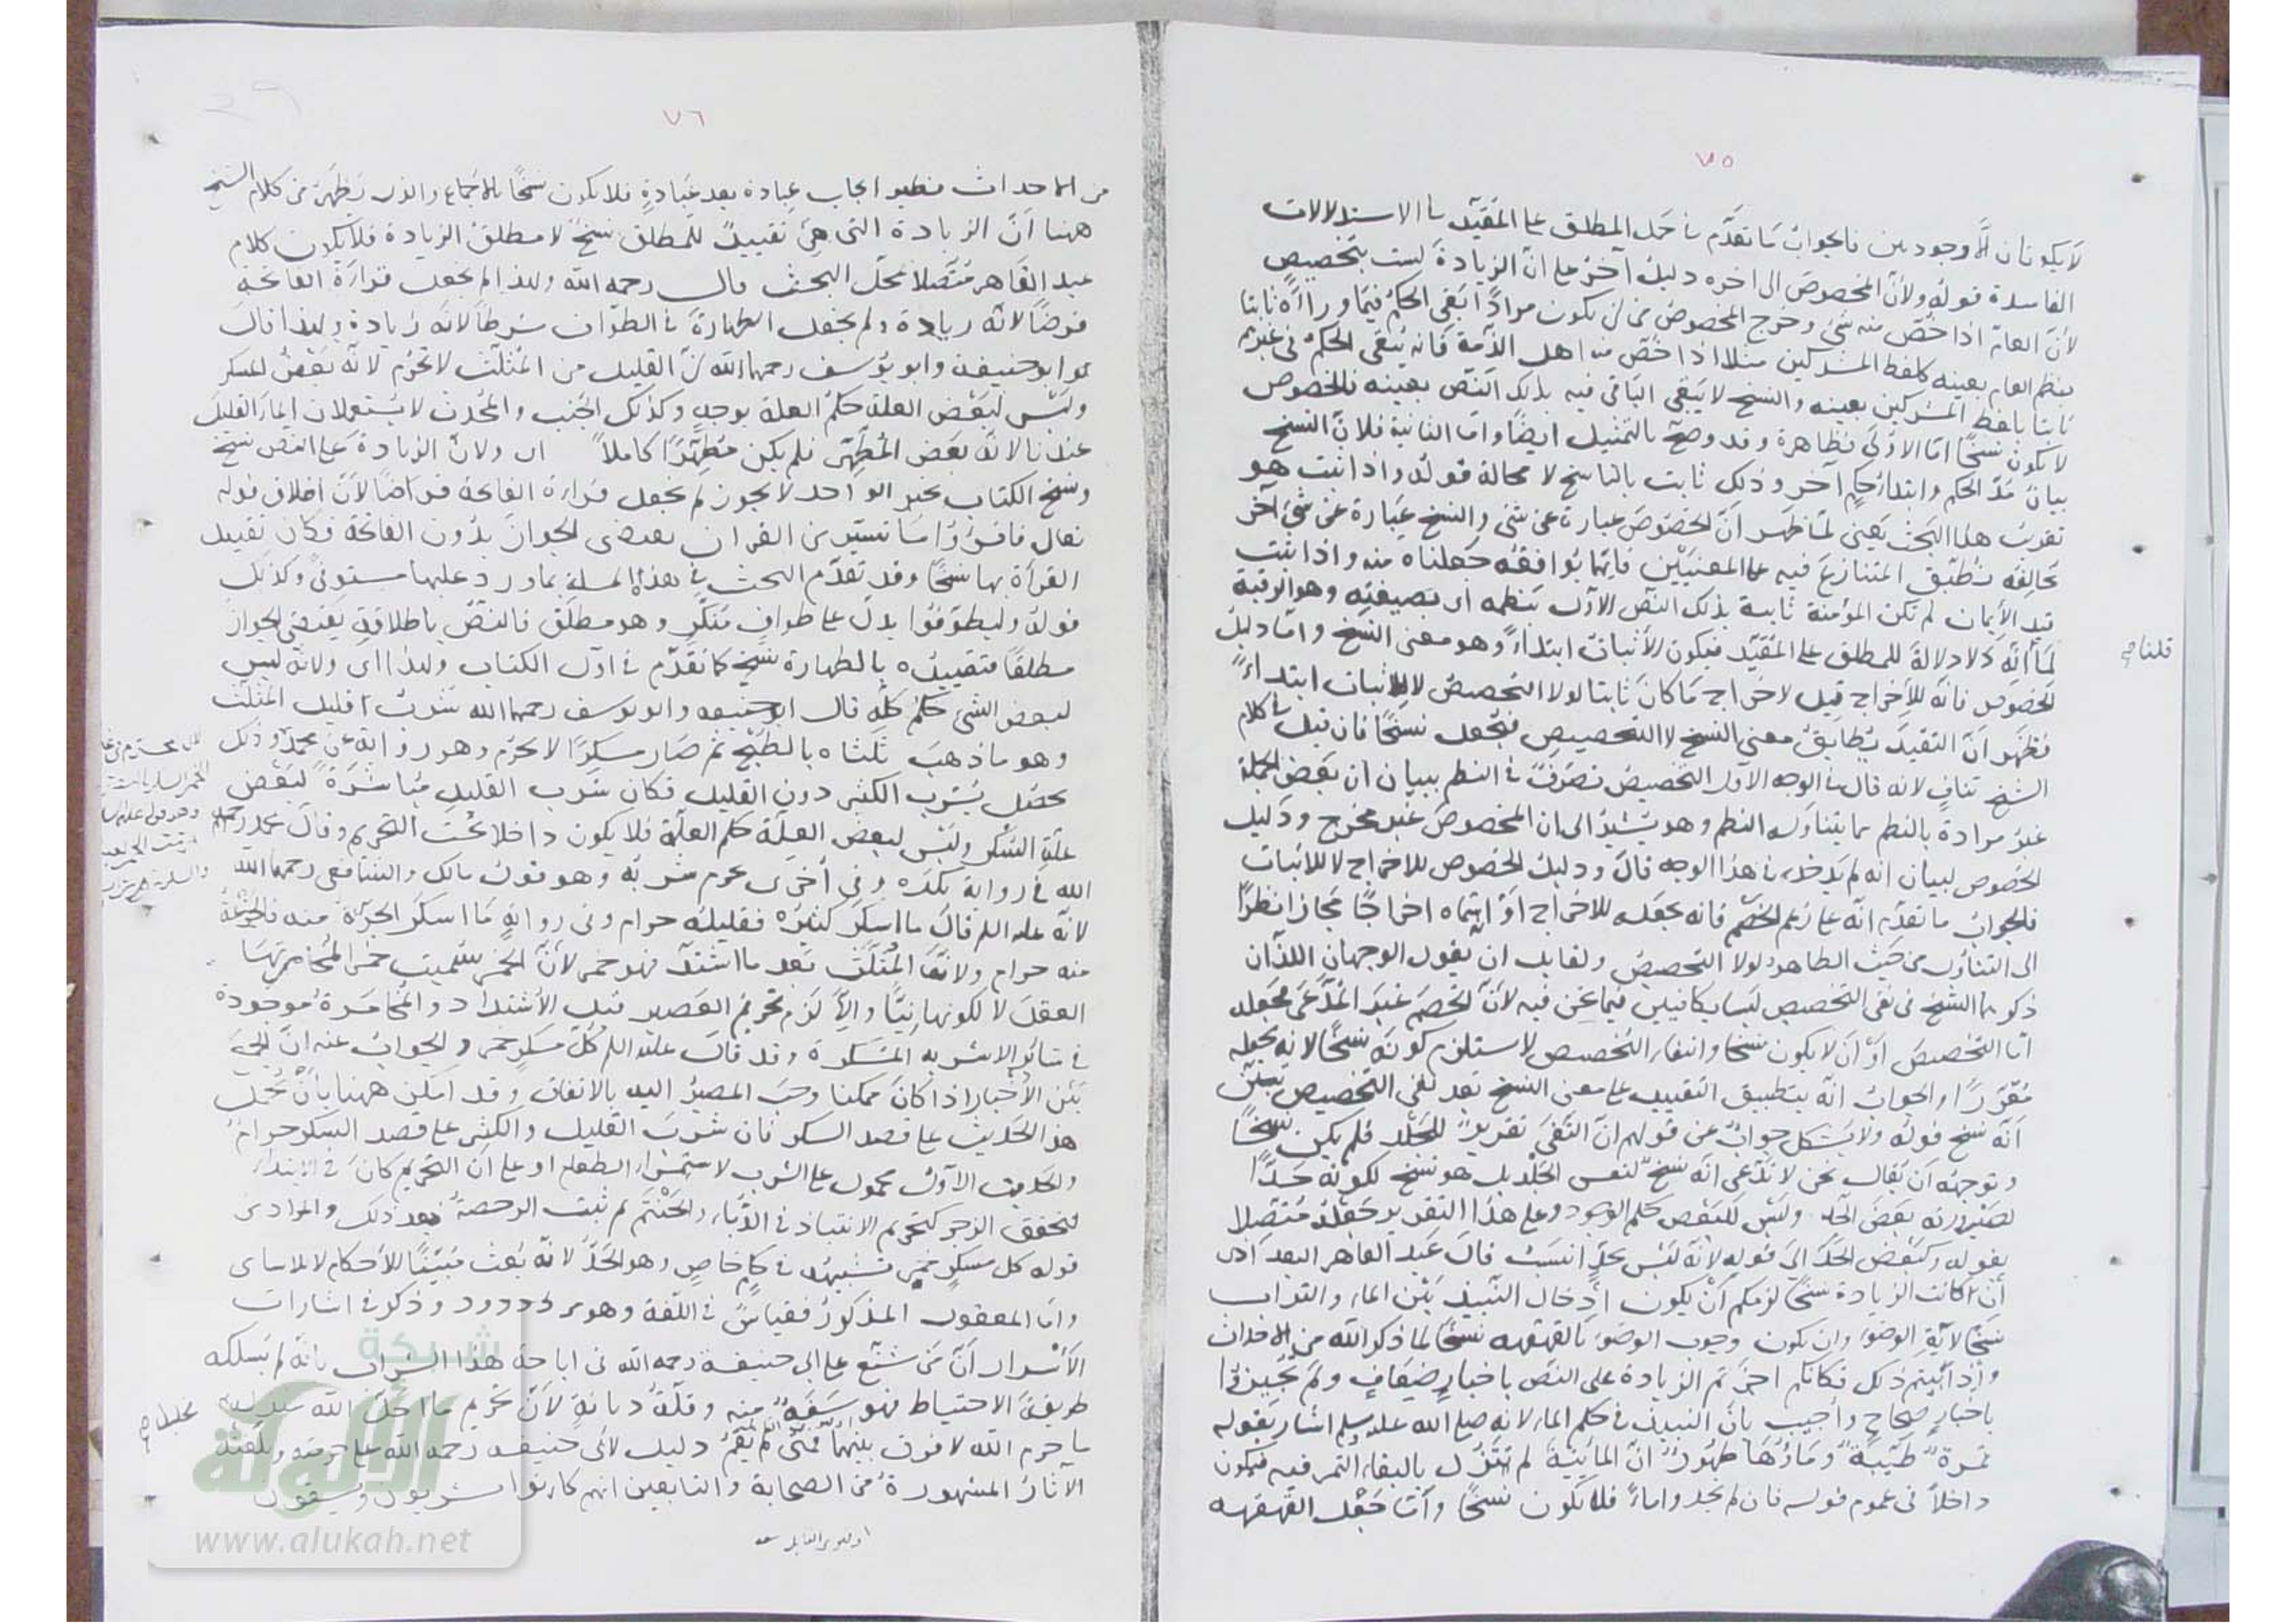 ٧٥
لا يكونان الا وجوديين فالجواب ما تقدم في حمل المطلق على المقيد بالاستدلالات
الفاسدة قوله ولأن المخصوص الى اخره دليل آخر على ان الزيادة ليست بتخصيص
لأن العام اذا خص منه شئ وخرج المخصوص من ان يكون مرادا بقي الحكم فيما وراه ثابتا
بنظم العام بعينه كلفظ المشركين مثلا اذا خص منه اهل الذمة فانه يبقى الحكم في غيرهم
ثابتا بلفظ المشركين بعينه والنسخ لا يبقى الباقي فيه بذلك النص بعينه فالخصوص
لا يكون نسخا اما الاولى فظاهرة وقد وضح بالتمثيل ايضا واما الثانية فلان النسخ
بيان مدة الحكم وابتداء حكم آخر وذلك ثابت بالناسخ لا محالة قوله واذا ثبت هو
تقريب هذا البحث يعني لما ظهر ان الخصوص عبارة عن شئ والنسخ عبارة عن شئ آخر
يخالفه نطبق المتنازع فيه على المعنيين فايهما يوافقه جعلناه منه واذا ثبت
قيد الأيمان لم تكن المؤمنة ثابتة بذلك النص الاول بنظمه اى بصيغته وهو الرقبة
لما انه لا دلالة للمطلق على المقيد فيكون للأثبات ابتداء وهو معنى النسخ واما دليل
قلنا صح
الخصوص فانه للإخراج قيل لاخراج ما كان ثابتا لولا التخصيص لا للاثبات ابتداء
فظهر ان التقييد يطابق معنى النسخ لا التخصيص فيجعل نسخا فان قيل في كلام
الشيخ تناف لانه قال في الوجه الاول التخصيص تصرف في النظم ببيان ان بعض الجملة
غير مرادة بالنظم مما يتناوله النظم وهو يشير الى ان المخصوص غير مخرج ودليل
الخصوص لبيان انه لم يدخل وفي هذا الوجه قال ودليل الخصوص للاخراج لا للاثبات
فالجواب ما تقدم انه على زعم الخصم فانه يجعله للاخراج او سماه اخراجا مجازا نظرا
الى التناول من حيث الظاهر لولا التخصيص ولقايل ان يقول الوجهان اللذان
ذكرهما الشيخ في نفي التخصيص ليسا بكافيين فيما نحن فيه لأن الخصم غير المدعى يجعله
اما التخصيص او ان لا يكون نسخا وانتفاء التخصيص لا يستلزم كونه نسخا لانه يجعله
مقررا والجواب انه بتطبيق التقييد على معنى النسخ بعد نفي التخصيص تبين
انه نسخ قوله ولا يشكل جواب عن قولهم ان النفي تقرير للجلد فلم يكن نسخا
وتوجيهه ان يقال نحن لا ندعى انه نسخ لنفس الجلد بل هو نسخ لكونه حدا
لصيرورته بعض الحد وليس للبعض حكم الوجود وعلى هذا التقرير جعله متصلا
بقوله وكبعض الحد الى قوله لانه ليس بحد انسب قال عبد القاهر البغدادى
ان كانت الزيادة نسخا لزمكم ان يكون ادخال النبيذ بين الماء والتراب
نسخا لآية الوضوء وان يكون وجوب الوضوء بالقهقهه نسخا لما ذكر الله من الاحداث
واذا اثبتم ذلك فكانكم اجزتم الزيادة على النص باخبار ضعاف ولم تجيزوا
باخبار صحاح واجيب بان النبيذ في حكم الماء لانه صلى الله عليه وسلم اشار بقوله
تمرة طيبة وماؤها طهور ان المائية لم تتزل بالقاء التمر فيه فيكون
داخلا في عموم قوله فان لم تجدوا ماء فلا يكون نسخا واما جعل القهقهه
٧٦
من الاحداث فنظير ايجاب عبادة بعد عبادة فلا يكون نسخا بالاجماع والذى يظهر من كلام الشيخ
ههنا ان الزيادة التى هى تقييد للمطلق نسخ لا مطلق الزيادة فلا يكون كلام
عبد القاهر متصلا بمحل البحث قال رحمه الله ولهذا لم يجعل قراءة الفاتحة
فرضا لانه زيادة ولم يجعل الطهارة في الطواف شرطا لانه زيادة ولهذا قال
ابو حنيفة وابو يوسف رحمهما الله ان القليل من المثلث لا يحرم لانه بعض المسكر
وليس لبعض العلة حكم العلة بوجه وكذلك الجنب والمحدث لا يستعملان الماء القليل
عندنا لانه بعض المطهر فلم يكن مطهرا كاملا اى ولان الزيادة على النص نسخ
ونسخ الكتاب بخبر الواحد لا يجوز لم يجعل قراءة الفاتحة فرضا لأن اطلاق قوله
تعالى فاقرؤا ما تيسر من القران يقتضى الجواز بدون الفاتحة فكان تقييد
القرأة بها نسخا وقد تقدم البحث في هذه المسلة بما ورد عليها مستوفى وكذلك
قوله وليطوفوا يدل على طواف منكر وهو مطلق فالنص باطلاقه يقتضى الجواز
مطلقا فتقييده بالطهارة نسخ كما تقدم في اول الكتاب ولهذا اى ولانه ليس
لبعض الشئ حكم كله قال ابو حنيفه وابو يوسف رحمهما الله شرب القليل المثلث
وهو ما ذهب ثلثاه بالطبخ ثم صار مسكرا لا يحرم وهو رواية عن محمد وذلك
يحصل بشرب الكثير دون القليل فكان شرب القليل مباشرة لبعض
علة السكر وليس لبعض العلة حكم العلة فلا يكون داخلا تحت التحريم وقال محمد رحمه
الله في رواية يكره وفي أخرى يحرم شربه وهو قول مالك والشافعي رحمهما الله
لانه عليه السلام قال ما اسكر كثيره فقليله حرام وفي رواية ما اسكر الجرة منه فالجرعة
منه حرام ولان المثلث بعد ما اشتد فهو خمر لأن الخمر سميت خمرا لمخامرتها
العقل لا لكونها نيا وإلا لزم تحريم العصير قبل الأشتداد والمخامرة موجودة
في سائر الاشربه المسكرة وقد قال عليه السلام كل مسكر خمر والجواب عنه ان الجمع
بين الأخبار اذا كان ممكنا وجب المصير اليه بالاتفاق وقد امكن ههنا بان يحمل
هذا الحديث على قصد السكر فان شرب القليل والكثير على قصد السكر حرام
والحديث الاول محمول على الشرب لاستمراء الطعام او على ان التحريم كان في الابتداء
لتحقق الزجر كتحريم الانتباذ في الدباء والحنتم ثم ثبت الرخصة بعد ذلك والمراد من
قوله كل مسكر خمر تشبيهه في حكم خاص وهو الحد لانه بعث مبينا للأحكام لا للاسامى
واما المعقول المذكور فقياس في اللغة وهو مردود وذكر في اشارات
الأسرار ان من شنع على ابى حنيفة رحمه الله في اباحة هذا الشراب بانه لم يسلك
طريقة الاحتياط فهو سفه منه وقلة ديانة لأن تحريم ما احل الله
ما حرم الله لا فرق بينهما فمتى لم يقم دليل لابى حنيفه رحمه الله على حرمته وبلغته
الآثار المشهورة من الصحابة والتابعين انهم كانوا يشربون ويسقون
شبكة
الألوكة
www.alukah.net